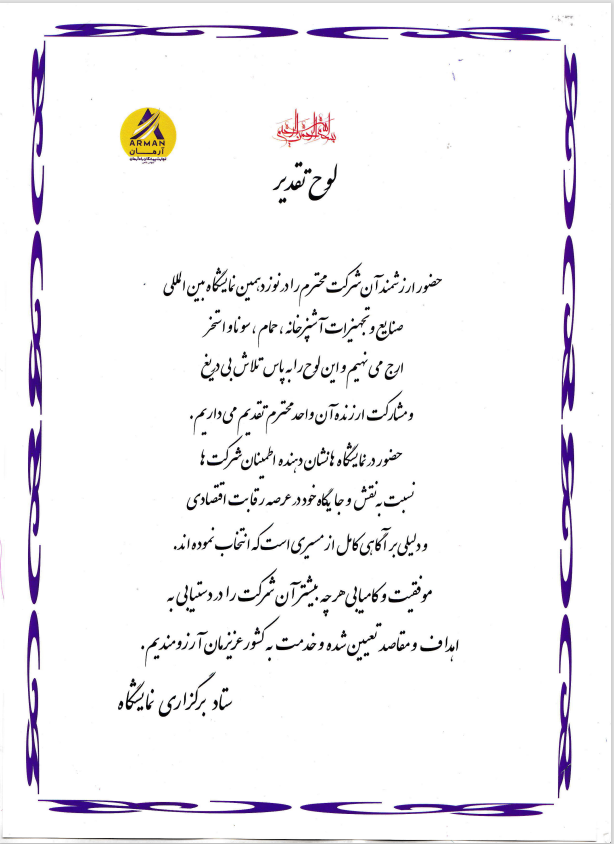 بسم الله الرحمن الرحیم
ARMAN
آرمان
لوح تقدیر
حضور ارزشمند آن شرکت محترم را در نوزدهمین نمایشگاه بین المللی
صنایع و تجهیزات آشپزخانه ، حمام ، سونا و استخر
ارج می نهیم و این لوح را به پاس تلاش بی دریغ
و مشارکت ارزنده آن واحد محترم تقدیم می داریم .
حضور در نمایشگاه ها نشان دهنده اطمینان شرکت ها
نسبت به نقش و جایگاه خود در عرصه رقابت اقتصادی
و دلیلی بر آگاهی کامل از مسیری است که انتخاب نموده اند .
موفقیت و کامیابی هر چه بیشتر آن شرکت را در دستیابی به
اهداف و مقاصد تعیین شده و خدمت به کشور عزیزمان آرزومندیم .
ستاد برگزاری نمایشگاه